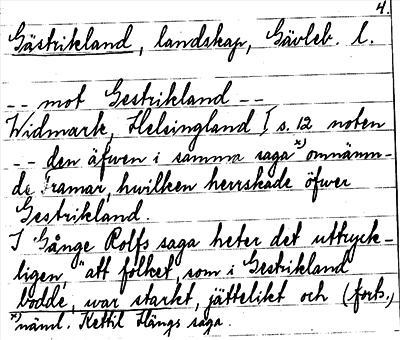 4.
Gästrikland, landskap, Gävleb. l.
-- mot Gestrikland --
Widmark, Helsingland I s. 12 noten
-- den äfwen i samma saga x) omnäm-
de Framar, hwilken herrskade öfwer
Gestrikland.
I Gånge Rolfs saga heter det uttryck-
ligen, "att folket, som i Gestrikland
bodde, war starkt, jättelikt och (forts.)
x) näml. Kettil Hängs saga.